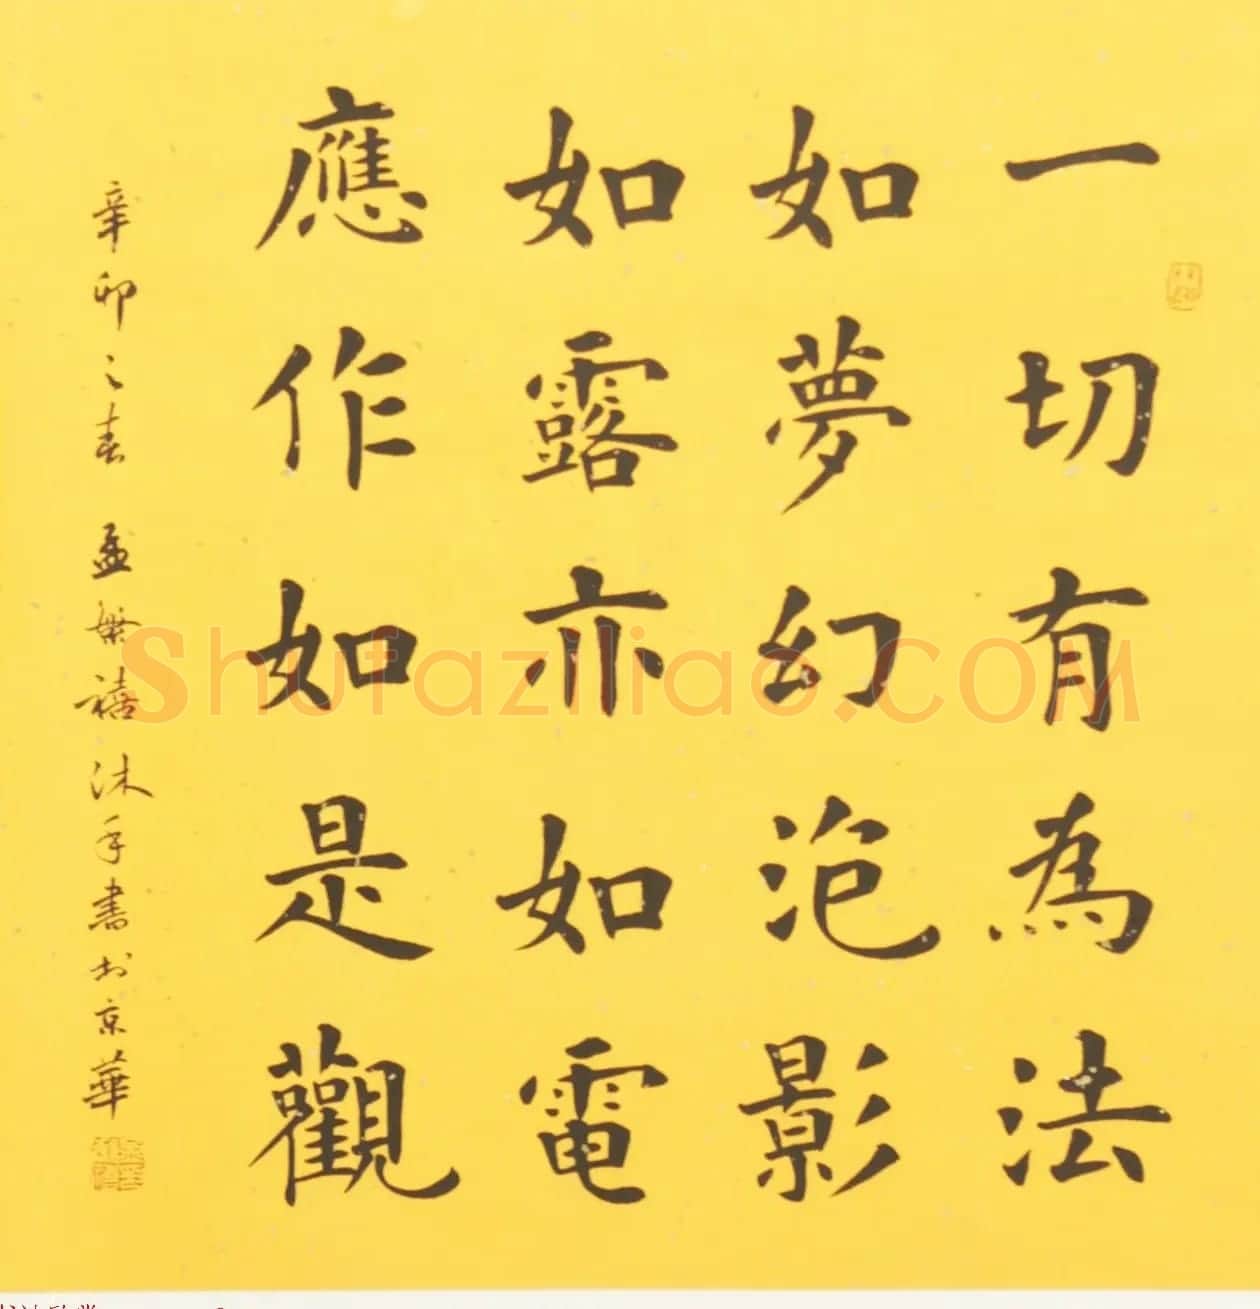 一切有為法
如夢幻泡影
如露亦如電
應作如是觀
辛卯之春 孟繁禧沐手書於京華
Shufaziliao.COM